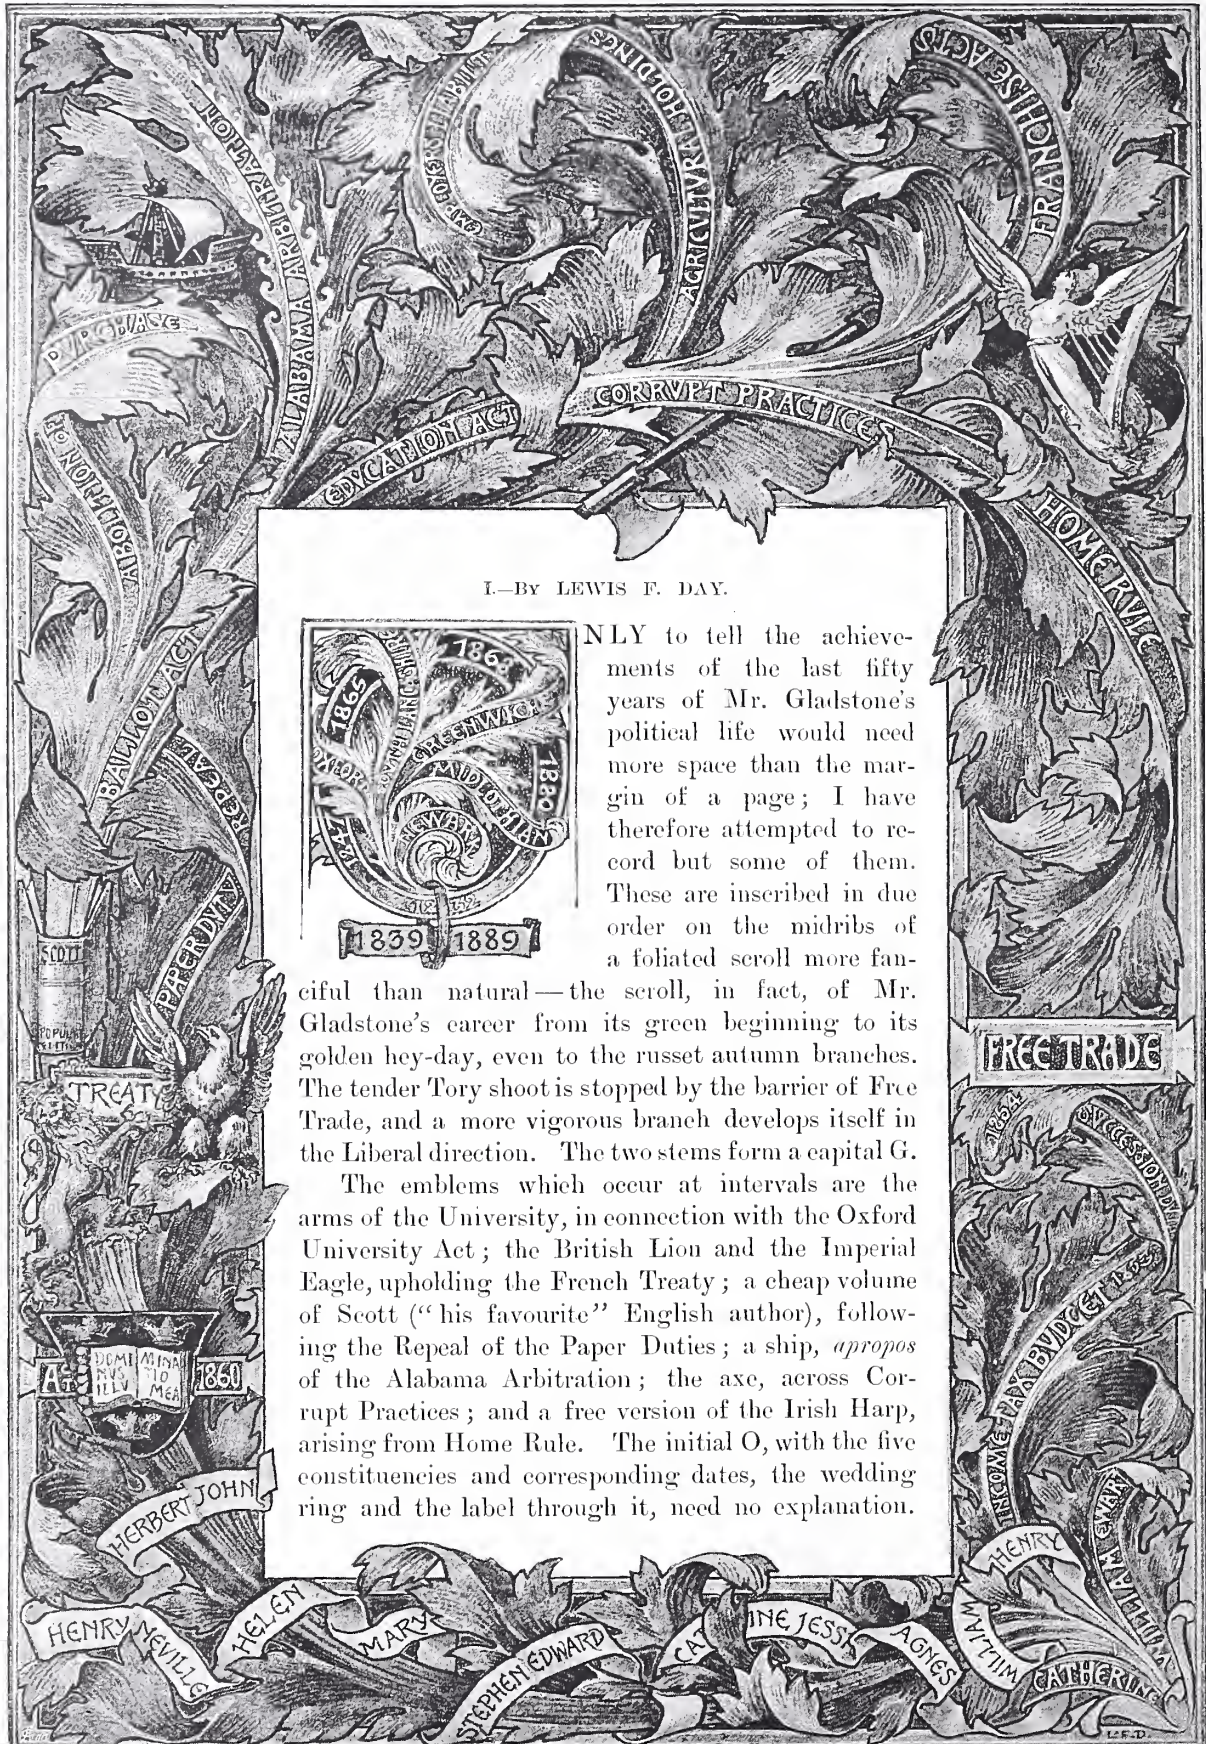 EMPLOYERS LIABILITY
AGRICVLTVRAL HOLDINGS
FRANCHISE ACTS
ALABAMA ARBITRATION
PVRCHASE
ABOLITION OF
EDVCATION ACT
CORRVPT PRACTICES
HOME RVLE
BALLOT ACT
REPEAL
PAPER DVTY
SCOTT
POPULAR
EDITION
TREATY
FREE TRADE
1854
SVCCESSION DVTY
INCOME TAX BVDGET 1853
A
1860
DOMI
NVS
ILLV
MINA
TIO
MEA
I.—By LEWIS F. DAY.
1865
1868
GREENWICH
OXFORD
MIDLOTHIAN
1880
NEWARK
1847
1832
1839 1889
NLY to tell the achieve-
ments of the last fifty
years of Mr. Gladstone's
political life would need
more space than the mar-
gin of a page; I have
therefore attempted to re-
cord but some of them.
These are inscribed in due
order on the midribs of
a foliated scroll more fan-
ciful than natural—the scroll, in fact, of Mr.
Gladstone's career from its green beginning to its
golden hey-day, even to the russet autumn branches.
The tender Tory shoot is stopped by the barrier of Free
Trade, and a more vigorous branch develops itself in
the Liberal direction. The two stems form a capital G.
The emblems which occur at intervals are the
arms of the University, in connection with the Oxford
University Act; the British Lion and the Imperial
Eagle, upholding the French Treaty; a cheap volume
of Scott ("his favourite" English author), follow-
ing the Repeal of the Paper Duties; a ship, apropos
of the Alabama Arbitration; the axe, across Cor-
rupt Practices; and a free version of the Irish Harp,
arising from Home Rule. The initial O, with the five
constituencies and corresponding dates, the wedding
ring and the label through it, need no explanation.
HERBERT JOHN
HENRY NEVILLE
HELEN
MARY
STEPHEN EDWARD
CAT INE JESSI
AGNES
WILLIAM HENRY
WILLIAM EWART
CATHERINE
L.F.D.